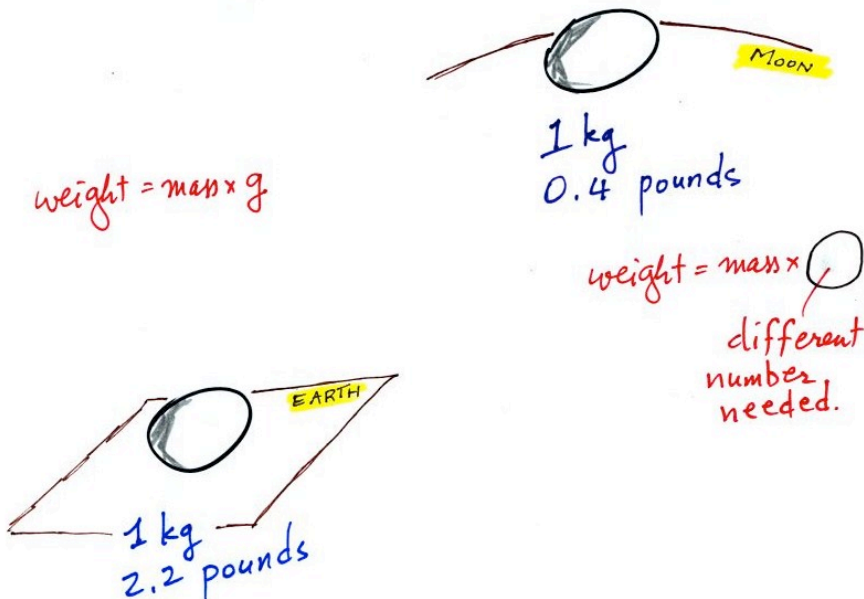 MOON
1 kg
0.4 pounds
weight = mass × g
weight = mass ×
different
number
needed.
EARTH
1 kg
2.2 pounds